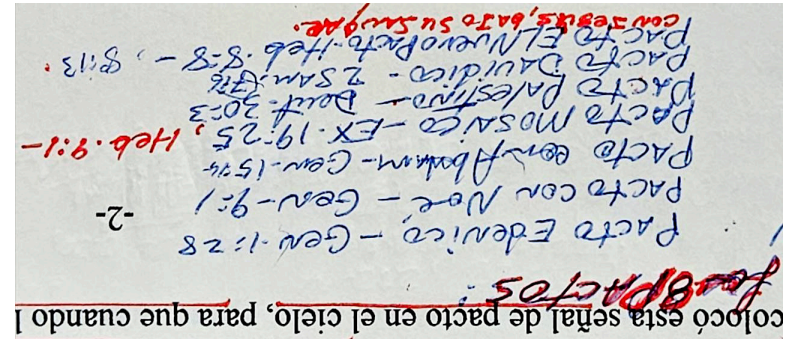 colocó esta señal de pacto en el cielo, para que cuando l
Los 8 PACTOS:
PACTO Edenico - Gen. 1:28
PACTO CON Noé - Gen - 9:1
-2-
PACTO con Abram - Gen - 15:4-
PACTO MOSAICO - EX. 19:25, Heb. 9:1-
PACTO PALESTINO - Deut. 30:3
PACTO DAVIDICO - 2 SAM.
PACTO EL Nuevo Pacto. Heb. 8:8 -, 8:13.
CON JESUS, BAJO SU SANGRE.